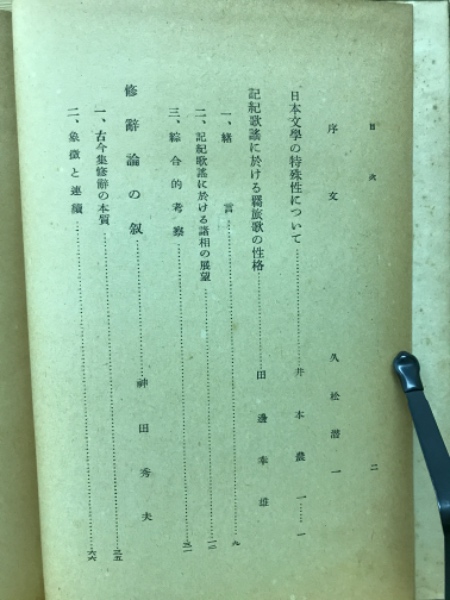 目次 二
序文 久松潜一
日本文學の特殊性について……井本農一……一
記紀歌謠に於ける羇旅歌の性格……田邊幸雄
一、緒言……九
二、記紀歌謠に於ける諸相の展望……一二
三、綜合的考察……三一
修辭論の敍……神田秀夫
一、古今集修辭の本質……三五
二、象徵と連繊……六六